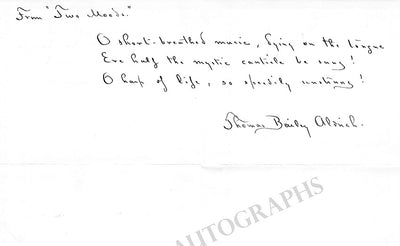 From "Two Moods."
O short-breathed music, dying on the tongue
Ere half the mystic canticle be sung!
O harp of life, so speedily unstrung!
Thomas Bailey Aldrich.
AUTOGRAPHS